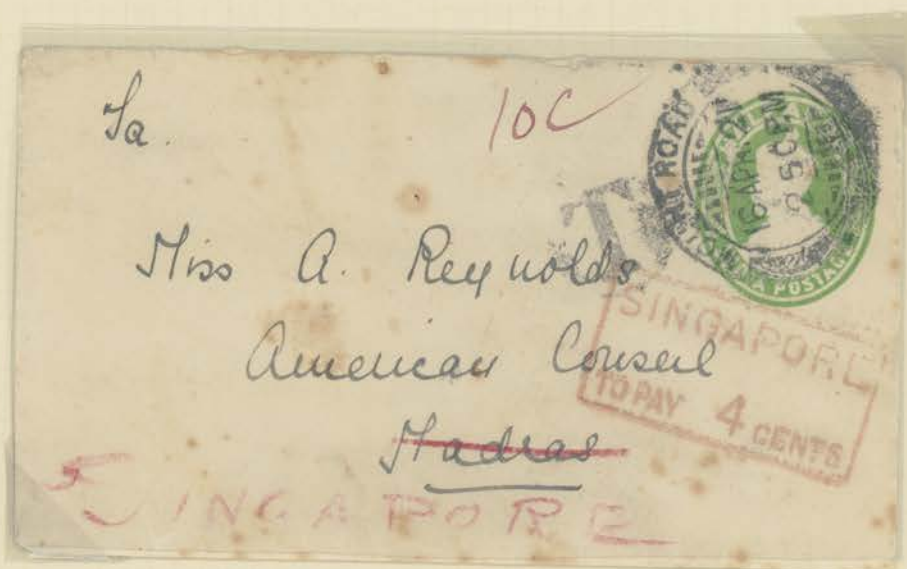 To.
10C
T
ROAD
16 APR
2 50 PM
INDIA POSTAGE
Miss A. Reynolds
American Consul
Madras
SINGAPORE
TO PAY 4 CENTS
SINGAPORE